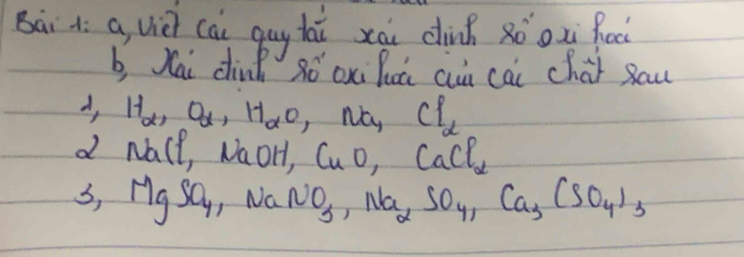 Bài 1: a, viết các quy tắc xác định số oxi hoá
b, Xác định số oxi hoá của các chất sau
1, H₂, O₂, H₂O, Na, Cl₂
2 NaCl, NaOH, CuO, CaCl₂
3, MgSO₄, NaNO₃, Na₂SO₄, Ca₃(SO₄)₃